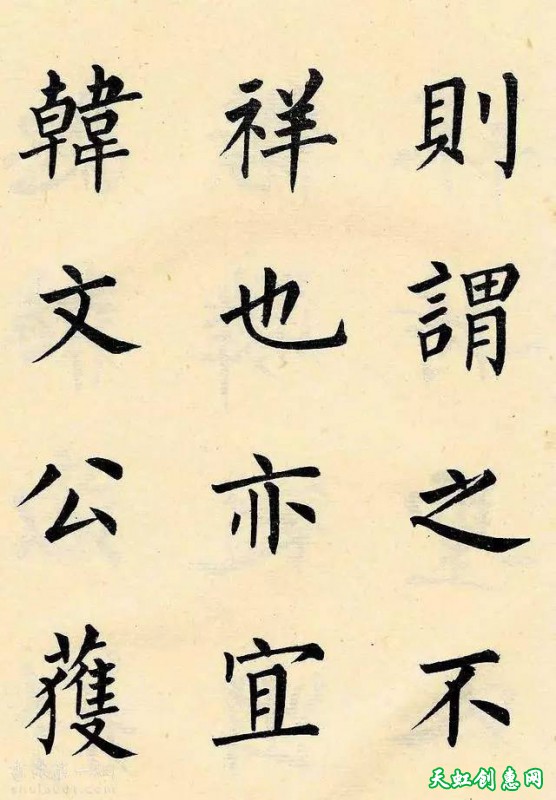 則謂之不
祥也亦宜
韓文公獲
天虹创惠网